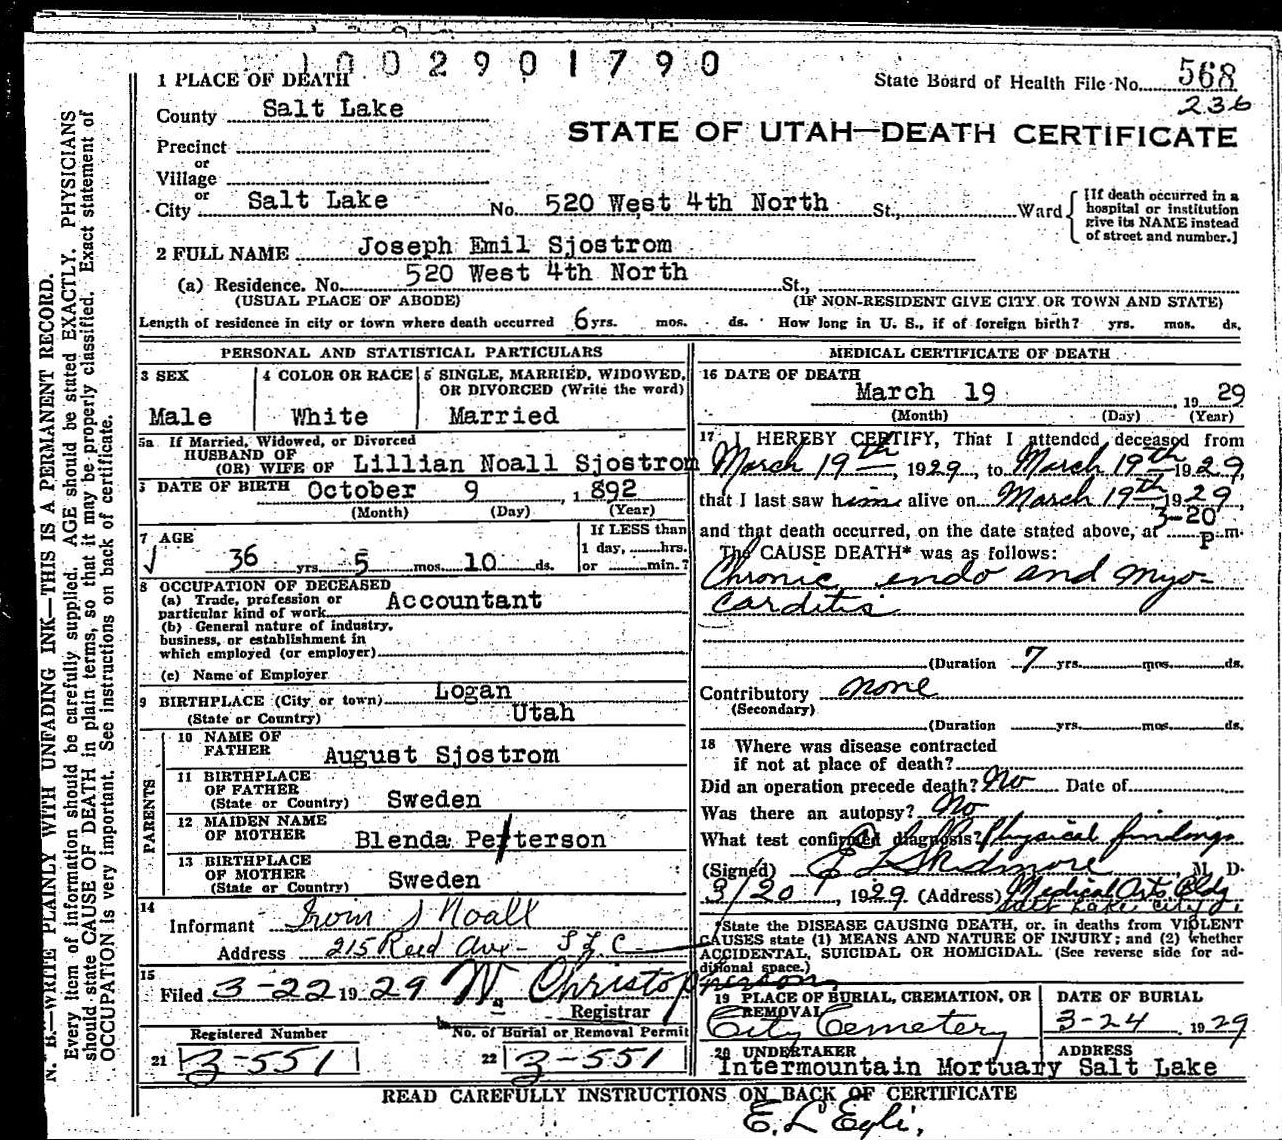 1002901790
1 PLACE OF DEATH
State Board of Health File No. 568
236
County Salt Lake
STATE OF UTAH—DEATH CERTIFICATE
Precinct
or
Village
or
City Salt Lake No. 520 West 4th North St., Ward
[If death occurred in a hospital or institution give its NAME instead of street and number.]
2 FULL NAME Joseph Emil Sjostrom
(a) Residence. No. 520 West 4th North St.,
(USUAL PLACE OF ABODE) (IF NON-RESIDENT GIVE CITY OR TOWN AND STATE)
Length of residence in city or town where death occurred 6 yrs. mos. ds. How long in U. S., if of foreign birth? yrs. mos. ds.
PERSONAL AND STATISTICAL PARTICULARS
3 SEX
Male
4 COLOR OR RACE
White
5 SINGLE, MARRIED, WIDOWED,
OR DIVORCED (Write the word)
Married
5a If Married, Widowed, or Divorced
HUSBAND OF
(OR) WIFE OF Lillian Noall Sjostrom
DATE OF BIRTH October 9, 1892
(Month) (Day) (Year)
7 AGE
36 yrs. 5 mos. 10 ds.
If LESS than
1 day, hrs.
or min.?
8 OCCUPATION OF DECEASED
(a) Trade, profession or
particular kind of work Accountant
(b) General nature of industry,
business, or establishment in
which employed (or employer)
(c) Name of Employer
9 BIRTHPLACE (City or town) Logan
(State or Country) Utah
PARENTS
10 NAME OF
FATHER August Sjostrom
11 BIRTHPLACE
OF FATHER
(State or Country) Sweden
12 MAIDEN NAME
OF MOTHER Blenda Petterson
13 BIRTHPLACE
OF MOTHER
(State or Country) Sweden
14
Informant Noall
Address 215 Reed Ave - S L C
15
Filed 3-22 1929 W. Christopherson
Registrar
Registered Number
21 3-551
No. of Burial or Removal Permit
22 3-551
MEDICAL CERTIFICATE OF DEATH
16 DATE OF DEATH
March 19, 1929
(Month) (Day) (Year)
17 I HEREBY CERTIFY, That I attended deceased from
March 19th, 1929, to March 19th 1929,
that I last saw him alive on March 19th 1929,
and that death occurred, on the date stated above, at 3-20 P.m.
The CAUSE DEATH* was as follows:
Chronic endo and myo-
carditis
(Duration 7 yrs. mos. ds.
Contributory none
(Secondary)
(Duration yrs. mos. ds.
18 Where was disease contracted
if not at place of death?
Did an operation precede death? No Date of
Was there an autopsy? No
What test confirmed diagnosis? Physical findings
(Signed) E L Skidmore M. D.
3/20, 1929 (Address) Medical Arts Bldg
Salt Lake City
*State the DISEASE CAUSING DEATH, or, in deaths from VIOLENT
CAUSES state (1) MEANS AND NATURE OF INJURY; and (2) whether
ACCIDENTAL, SUICIDAL OR HOMICIDAL. (See reverse side for ad-
ditional space.)
19 PLACE OF BURIAL, CREMATION, OR
REMOVAL
City Cemetery
DATE OF BURIAL
3-24, 1929
20 UNDERTAKER ADDRESS
Intermountain Mortuary Salt Lake
READ CAREFULLY INSTRUCTIONS ON BACK OF CERTIFICATE
E. L Egli.
N. B.—WRITE PLAINLY WITH UNFADING INK—THIS IS A PERMANENT RECORD.
Every item of information should be carefully supplied. AGE should be stated EXACTLY. PHYSICIANS
should state CAUSE OF DEATH in plain terms, so that it may be properly classified. Exact statement of
OCCUPATION is very important. See instructions on back of certificate.